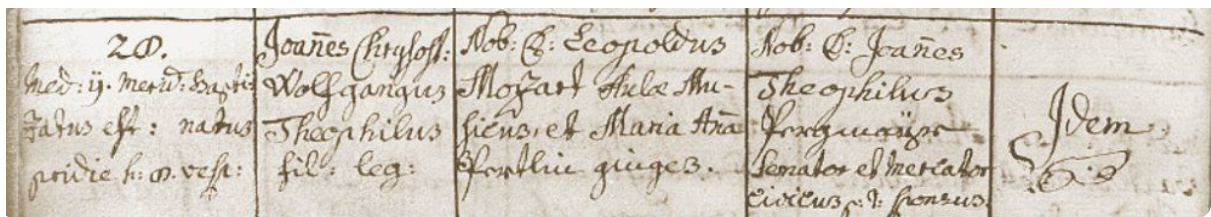 28.
med: ij. merid: Bapti:
zatus est: natus
pridie h: 8. vesp:
Joañes Chrysost:
Wolfgangus
Theophilus
fil: leg:
Nob: D: Leopoldus
Mozart Aulæ Mu-
sicus, et Maria Aña
Pertlin giuges.
Nob: D: Joañes
Theophilus
Pergmaÿr
Senator et Mercator
Civicus p: t: sponsus
Idem